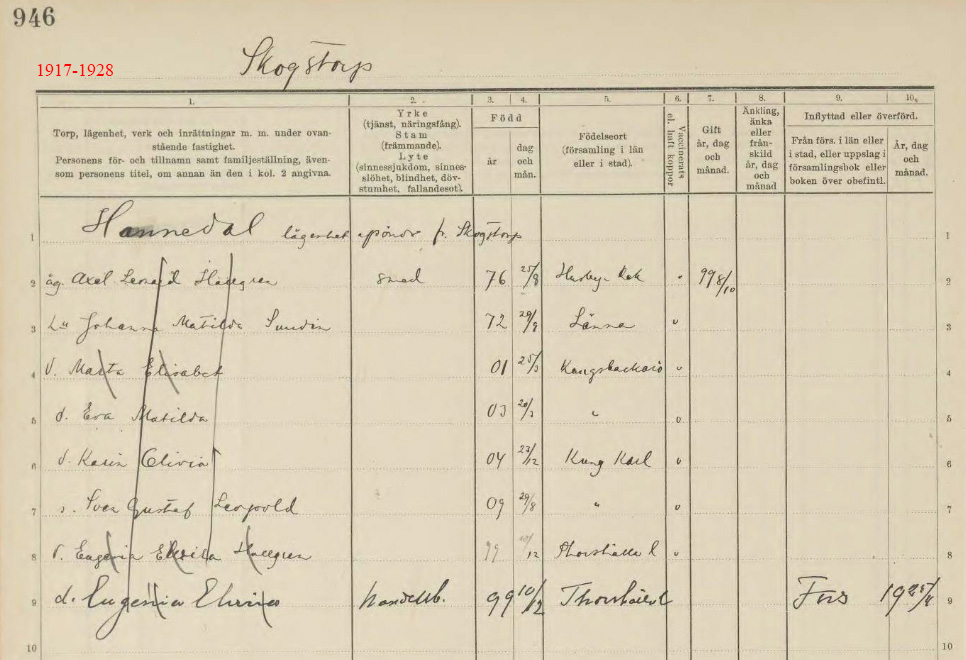 946
Skogstorp
1917-1928
1. 2. 3. 4. 5. 6. 7. 8. 9. 10.
Torp, lägenhet, verk och inrättningar m. m. under ovanstående fastighet.
Personens för- och tillnamn samt familjeställning, även-
som personens titel, om annan än den i kol. 2 angivna.
Yrke
(tjänst, näringsfång).
Stam
(främmande).
Lyte
(sinnessjukdom, sinnes-
slöhet, blindhet, döv-
stumhet, fallandesot).
Född
år
dag
och
mån.
Födelseort
(församling i län
eller i stad).
Vaccinerats
el. haft koppor
Gift
år, dag
och
månad.
Änkling,
änka
eller
från-
skild
år, dag
och
månad
Inflyttad eller överförd.
Från förs. i län eller
i stad, eller uppslag i
församlingsbok eller
boken över obefintl.
År, dag
och
månad.
1 Hannedal lägenhet fr. Skogstorp 1
2 äg. Axel Leonard Hällgren smed 76 25/8 99 8/10 2
3 hu Johanna Matilda Sundin 72 29/9 Länna 3
4 d. Marta Elisabet 01 25/3 4
5 d. Eva Matilda 03 20/3 " 5
6 d. Karin Olivia 04 23/12 Kung Karl 6
7 s. Sven Gustaf Leopold 09 29/8 " 7
8 d. Eugenia Elvira Hällgren 99 /12 Thorshälla l 8
9 d. Eugenia Elvira 99 10/12 Thorshälla l Fors 1925/4 9
10 10